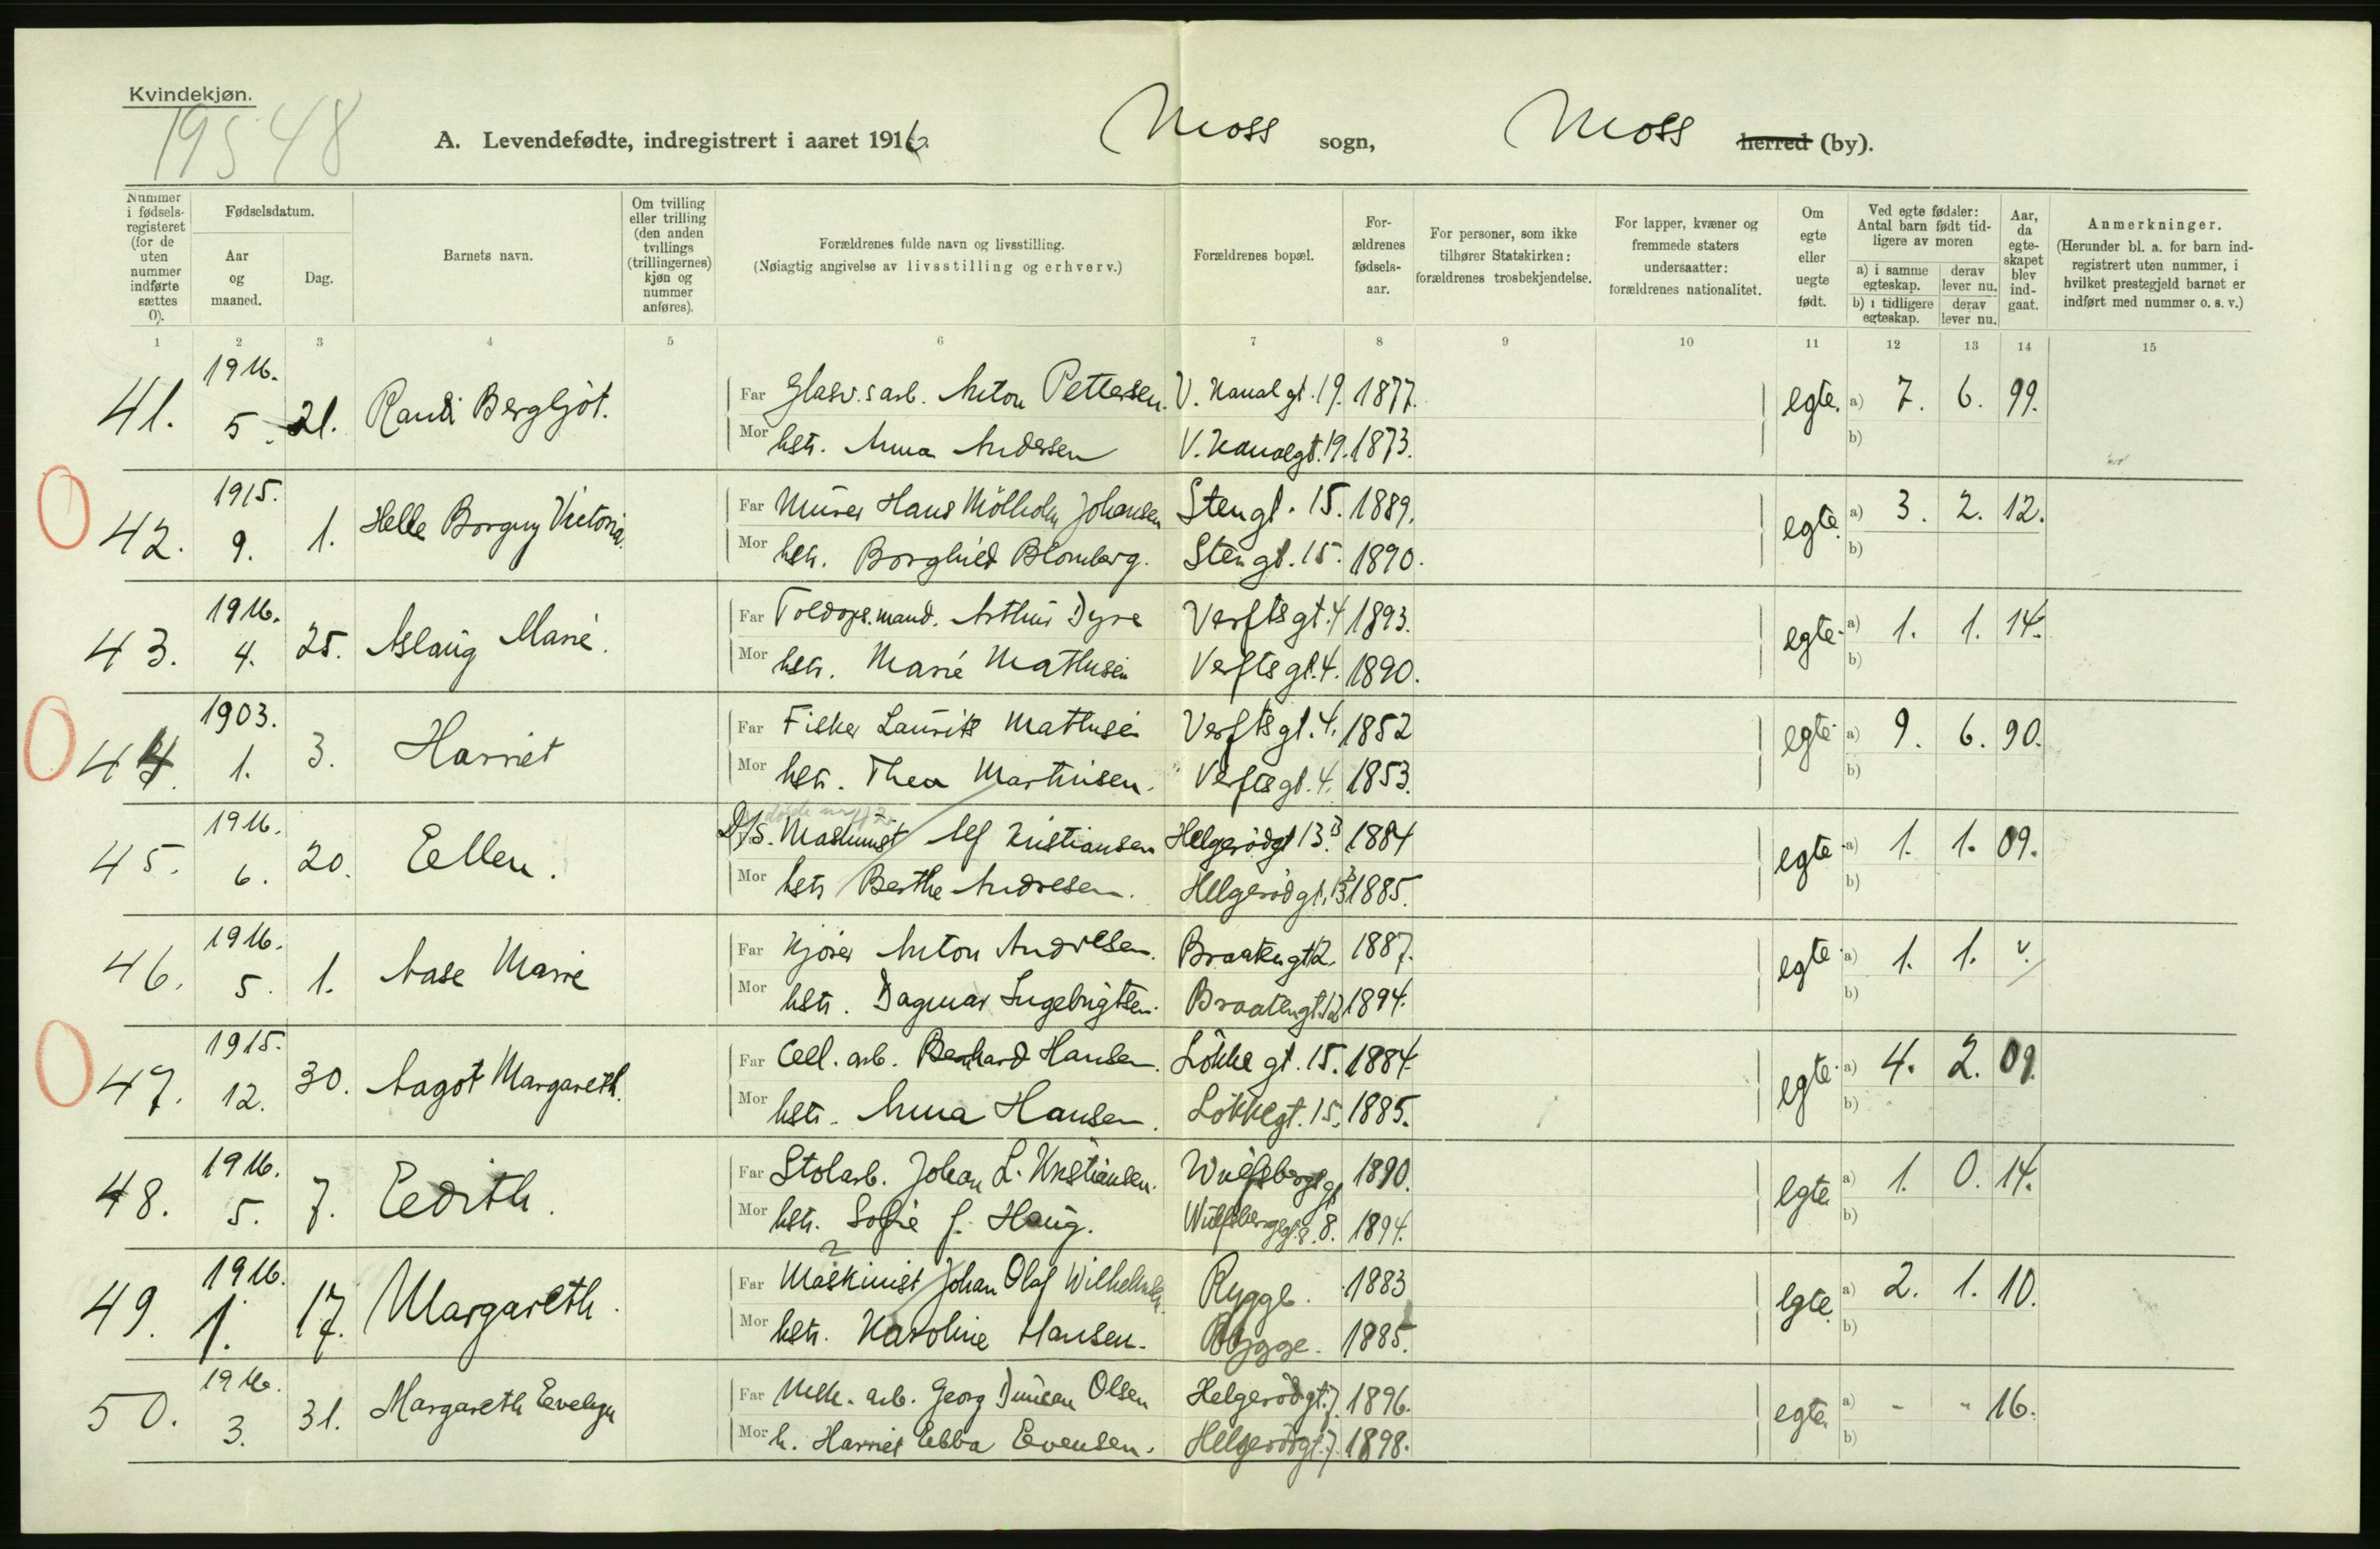 Kvindekjøn.
19548
A. Levendefødte, indregistrert i aaret 1916. Moss sogn, Moss herred (by).
Nummer i fødsels-registeret (for de uten nummer indførte sættes 0).
Fødselsdatum.
Aar og maaned.
Dag.
Barnets navn.
Om tvilling eller trilling (den anden tvillings (trillingernes) kjøn og nummer anføres).
Forældrenes fulde navn og livsstilling.
(Nøiagtig angivelse av livsstilling og erhverv.)
Forældrenes bopæl.
For-ældrenes fødsels-aar.
For personer, som ikke tilhører Statskirken: forældrenes trosbekjendelse.
For lapper, kvæner og fremmede staters undersaatter: forældrenes nationalitet.
Om egte eller uegte født.
Ved egte fødsler: Antal barn født tid-ligere av moren
a) i samme egteskap.
derav lever nu.
b) i tidligere egteskap.
derav lever nu.
Aar, da egte-skapet blev ind-gaat.
Anmerkninger.
(Herunder bl. a. for barn ind-registrert uten nummer, i hvilket prestegjeld barnet er indført med nummer o. s. v.)
1 2 3 4 5 6 7 8 9 10 11 12 13 14 15
41. 1916. 5. 21. Randi Bergljot. Far Glasv.sarb. Anton Pettersen. V. Kanalgt. 19. 1877. egte. a) 7. 6. 99.
Mor hstr. Anna Andersen V. Kanalgt. 19. 1873. b)
0 42. 1915. 9. 1. Helle Borgny Victoria. Far Murer Hans Mölholm Johansen Stengt. 15. 1889. egte. a) 3. 2. 12.
Mor hstr. Borghild Blomberg. Stengt. 15. 1890. b)
43. 1916. 4. 25. Aslaug Marie. Far Toldops.mand. Arthur Dyre Verftsgt. 4 1893. egte. a) 1. 1. 14.
Mor hstr. Marie Mathisen Verftsgt. 4. 1890. b)
0 44. 1903. 1. 3. Harriet Far Fisker Laurits Mathisen Verftsgt. 4. 1852 egte a) 9. 6. 90.
Mor hstr. Thea Martinsen. Verftsgt. 4. 1853. b)
45. 1916. 6. 20. Eellen. D/S. Maskinist Alf Kristiansen Helgerödgt 13. 1884 egte a) 1. 1. 09.
Mor hstr Berthe Andresen. Helgerödgt. 13 1885. b)
46. 1916. 5. 1. Aase Marie Far Kjörer Anton Andresen. Braatengt 12. 1887. egte a) 1. 1. v.
Mor hstr. Dagmar Ingebrigtsen. Braatengt. 12 1894. b)
0 47. 1915. 12. 30. Aagot Margareth. Far Cell. arb. Bernhard Hansen. Lökkegt. 15. 1884. egte a) 4. 2. 09.
Mor hstr. Anna Hansen. Lökkegt. 15. 1885. b)
48. 1916. 5. 7. Eedith. Far Stolarb. Johan L. Kristiansen. Wulfsbergsgt 1890. egte a) 1. 0. 14.
Mor hstr. Sofie f. Haug. Wulfsbergsgt. 8. 1894. b)
49. 1916. 1. 17. Margareth. Far Maskinist Johan Olaf Wilhelmsen. Rygge. 1883 egte a) 2. 1. 10.
Mor hstr. Karoline Hansen. Rygge. 1885. b)
50. 1916. 3. 31. Margareth Evelyn Far Mek. arb. Georg Duncan Olsen Helgerödgt. 7. 1896. egte. a) - - 16.
Mor h. Harriet Ebba Evensen. Helgerödgt. 7. 1898. b)